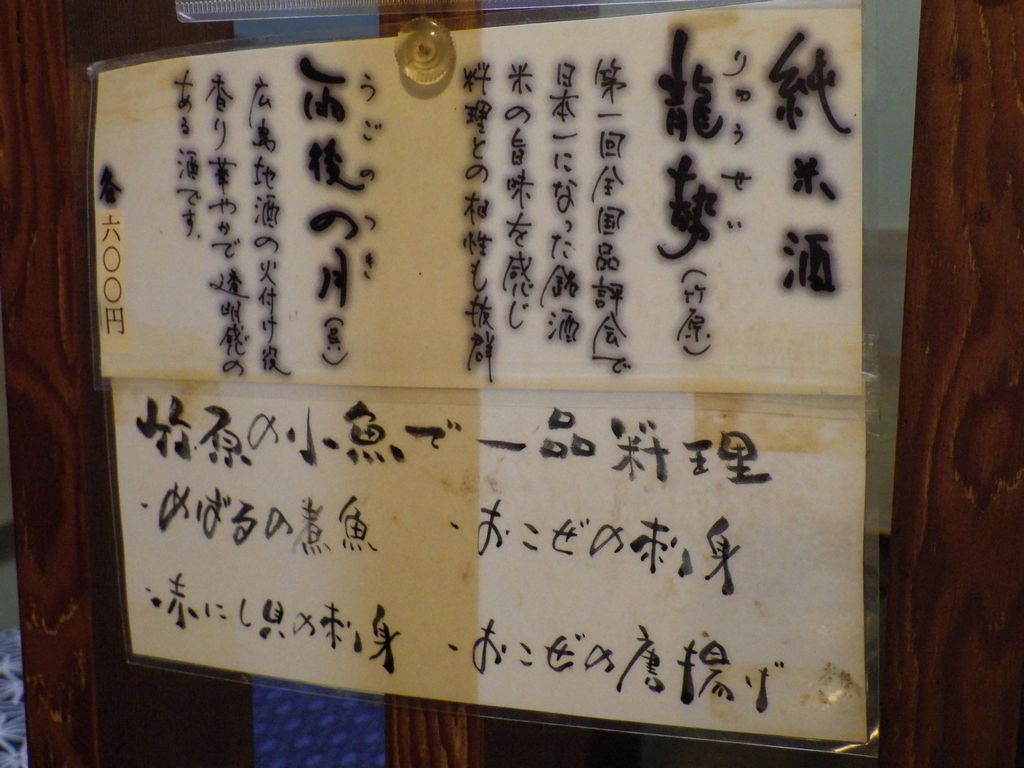 純米酒
りゅうせい
龍勢(竹原)
第一回全国品評会で
日本一になった銘酒
米の旨味を感じ
料理との相性も抜群
うごのつき
雨後の月(呉)
広島地酒の火付け役
香り華やかで透明感の
ある酒です。
各六〇〇円
竹原の小魚で一品料理
・めばるの煮魚
・おこぜの刺身
・赤にし貝の刺身
・おこぜの唐揚げ